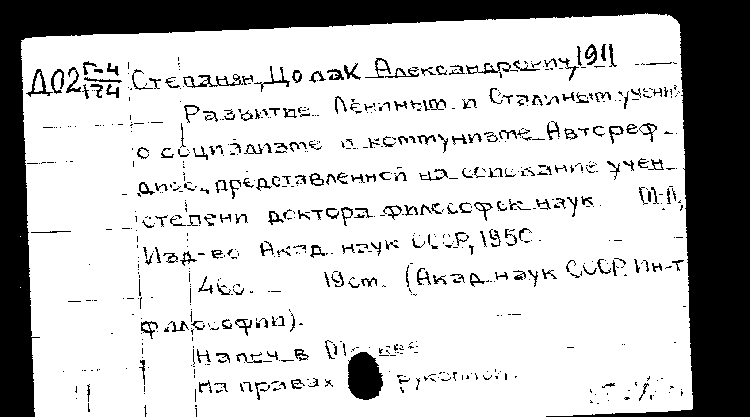 Д02 Г-4/174 Степанян, Цолак Александрович, 1911
Развитие Лениным и Сталиным учения
о социализме и коммунизме. Автореф.
дисс., представленной на соискание учен.
степени доктора философск. наук. М.-Л.,
Изд-во Акад. наук СССР, 1950.
46с. 19см. (Акад. наук СССР. Ин-т
философии).
Напеч. в Москве
На правах рукописи.